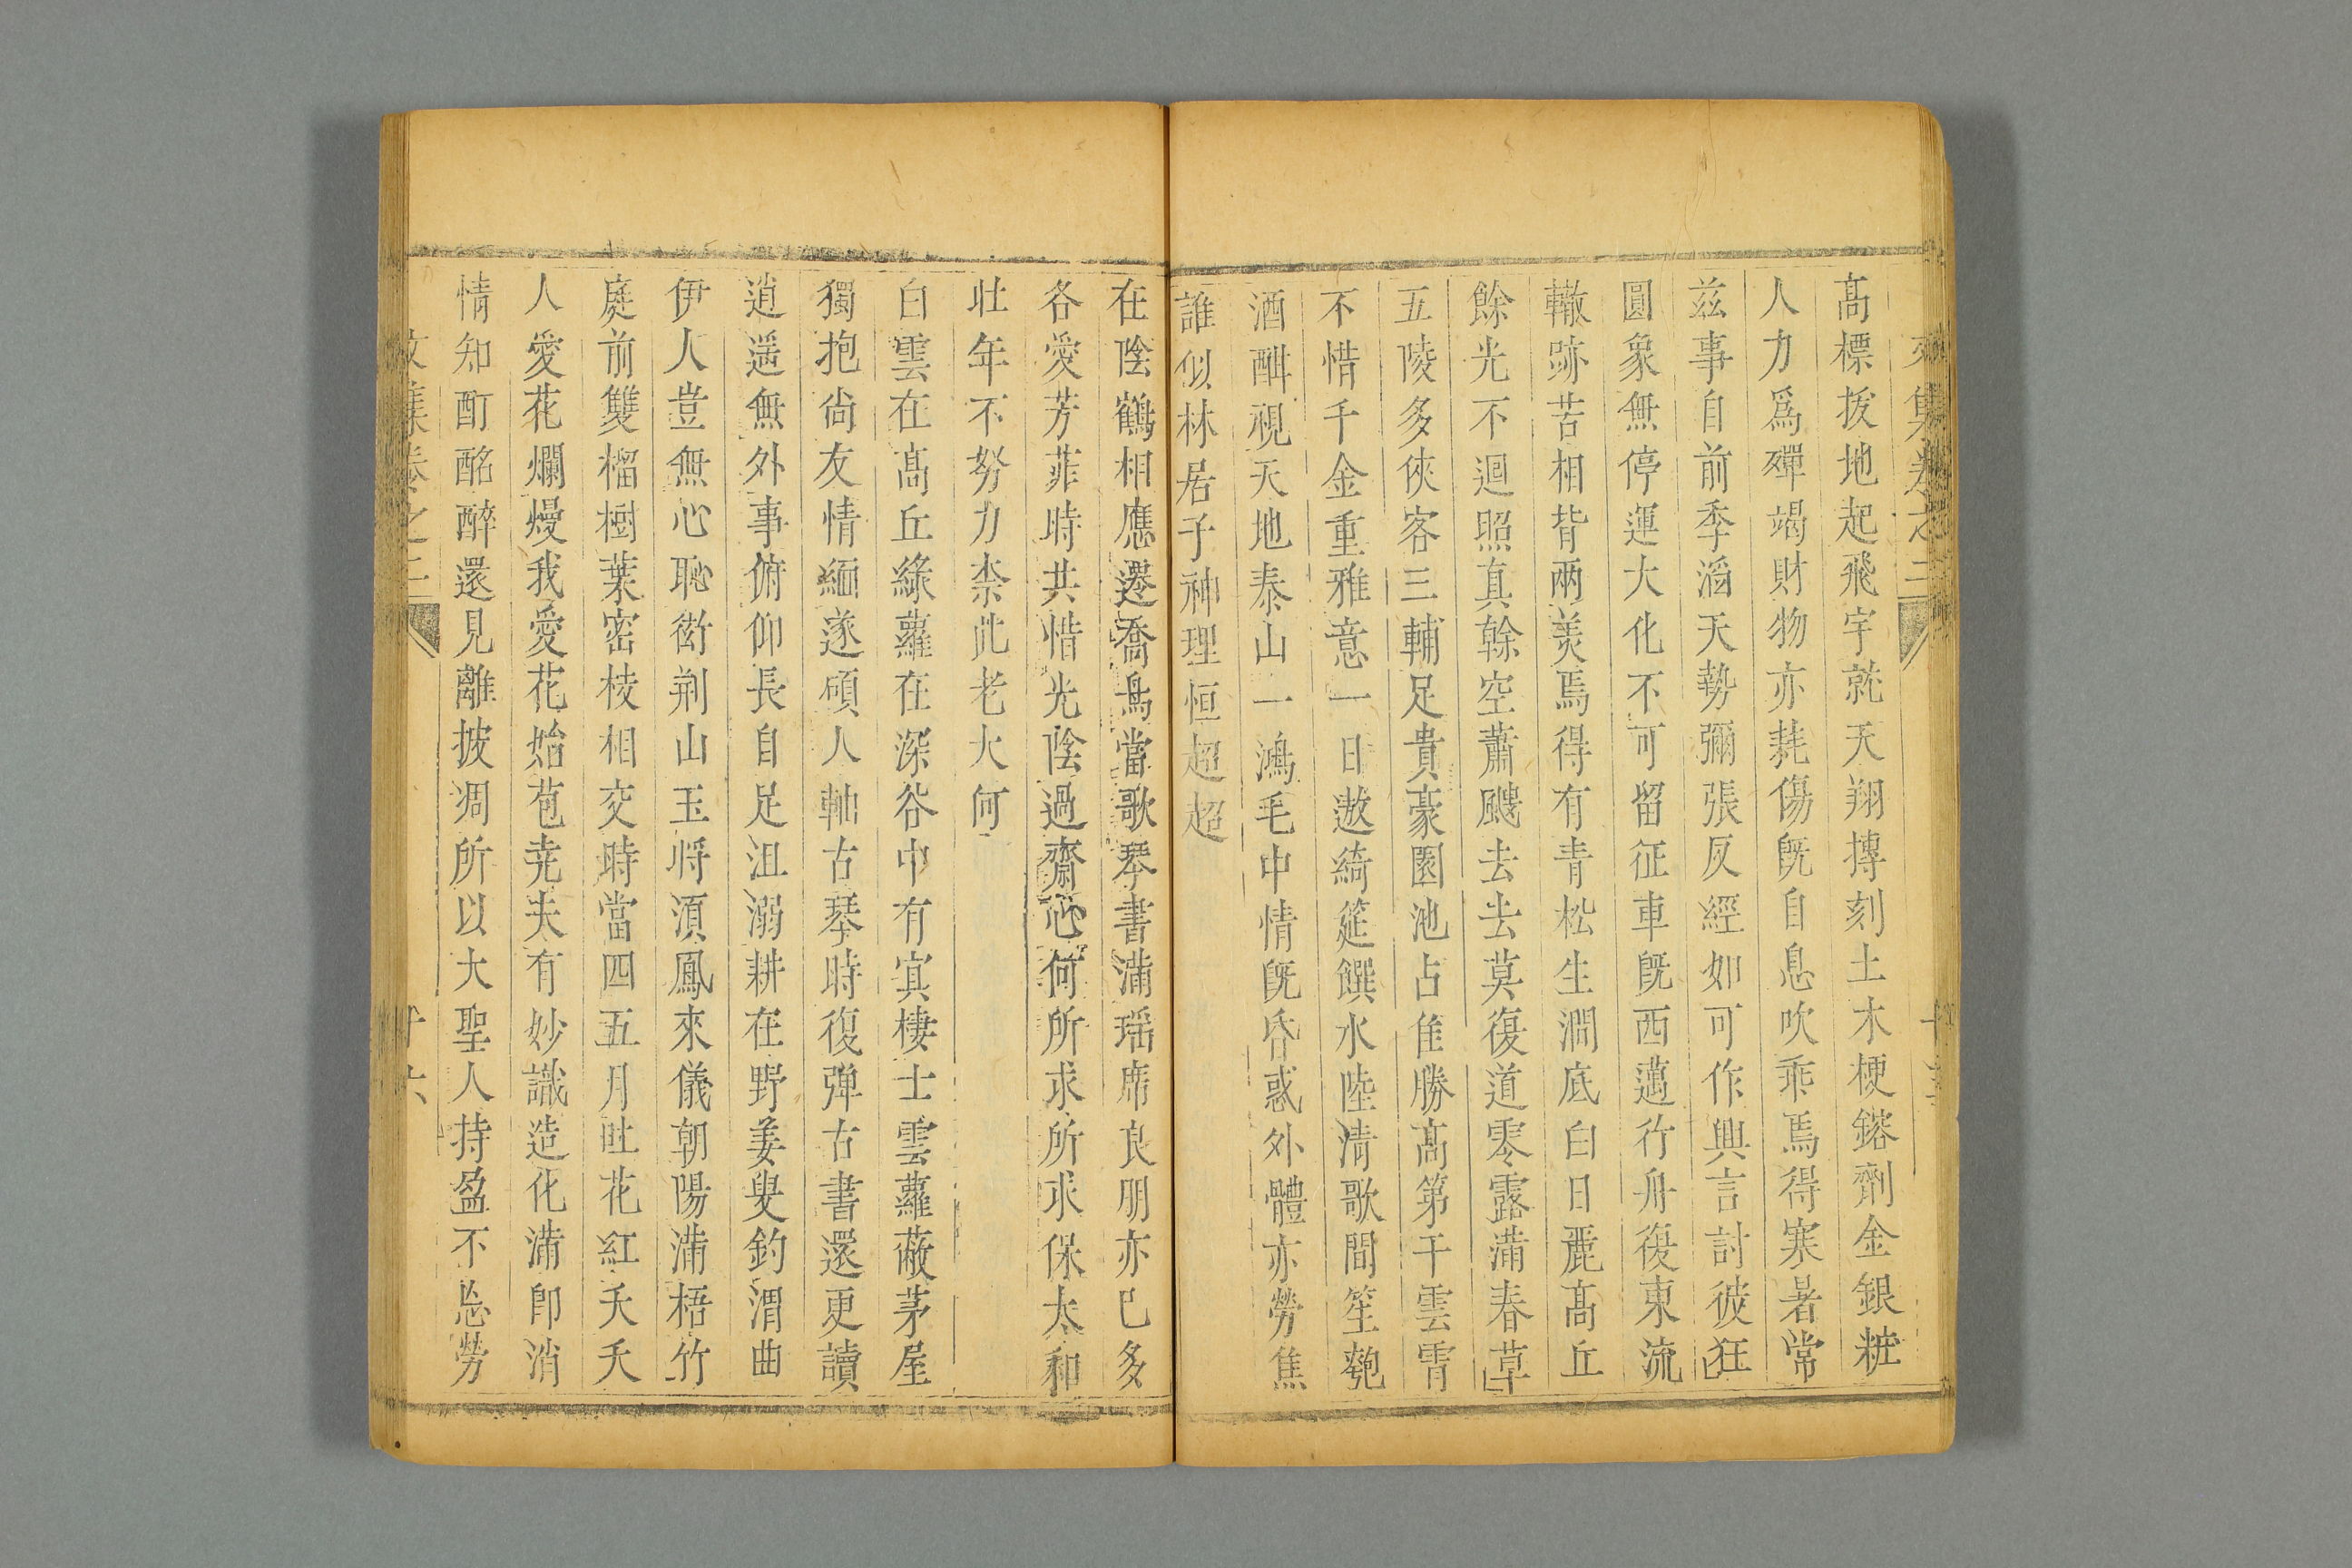 文集卷之二
高標拔地起飛宇就天翔摶刻土木梗鎔劑金銀粧
人力爲殫竭財物亦耗傷旣自息吹乖焉得寒暑常
兹事自前季滔天勢彌張反經如可作興言討彼狂
圓象無停運大化不可留征車旣西邁行舟復東流
轍跡苦相背兩美焉得有青松生澗底白日麗高丘
餘光不迴照真榦空蕭颼去去莫復道零露滿春草
五陵多俠客三輔足貴豪園池占隹勝高第干雲霄
不惜千金重雅意一日遨綺筵饌水陸清歌間笙匏
酒酣視天地泰山一鴻毛中情旣昏惑外體亦勞焦
誰似林居子神理恒超超
在陰鶴相應遷喬鳥當歌琴書滿瑶席良朋亦已多
各愛芳菲時共惜光陰過齋心何所求所求保太和
壯年不努力柰此老大何
白雲在高丘綠蘿在深谷中有寘棲士雲蘿蔽茅屋
獨抱尙友情緬遂碩人軸古琴時復彈古書還更讀
逍遥無外事俯仰長自足沮溺耕在野姜叟釣渭曲
伊人豈無心恥衒荆山玉將湏鳳來儀朝陽滿梧竹
庭前雙榴樹葉密枝相交時當四五月吐花紅夭夭
人愛花爛熳我愛花始苞尭夫有妙識造化滿卽消
情知酊酩醉還見離披凋所以大聖人持盈不忘勞
文集卷之二
十六